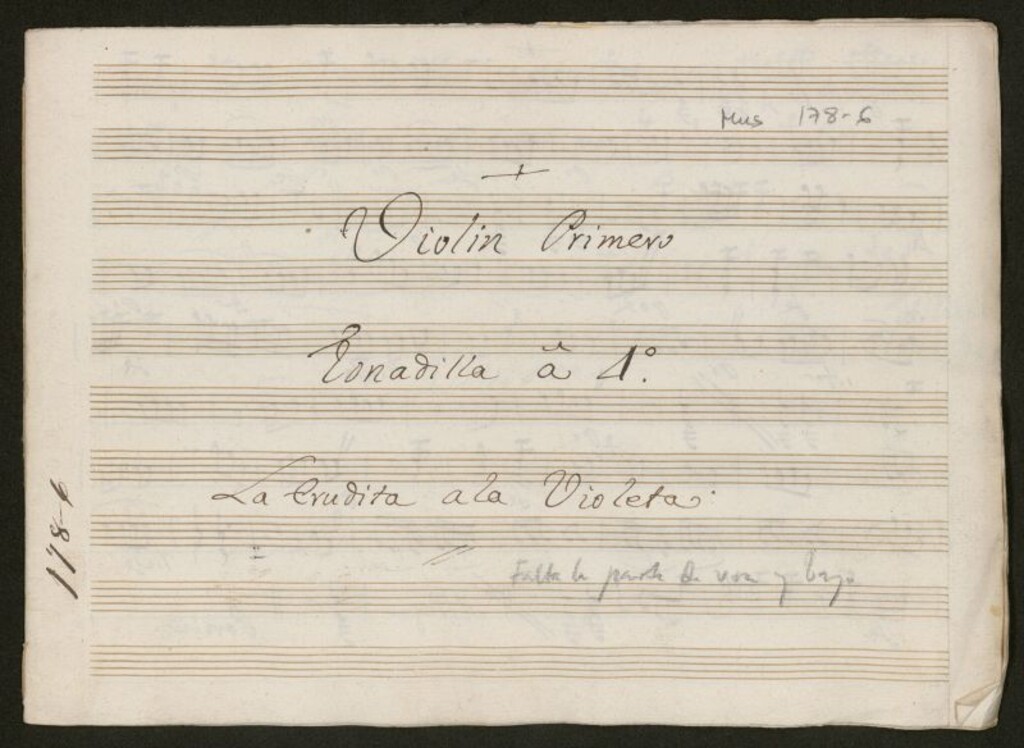 Mus 178-6
Violin Primero
Tonadilla â 4º.
La Erudita ala Violeta.
Falta la parte de voz y bajo
178-6